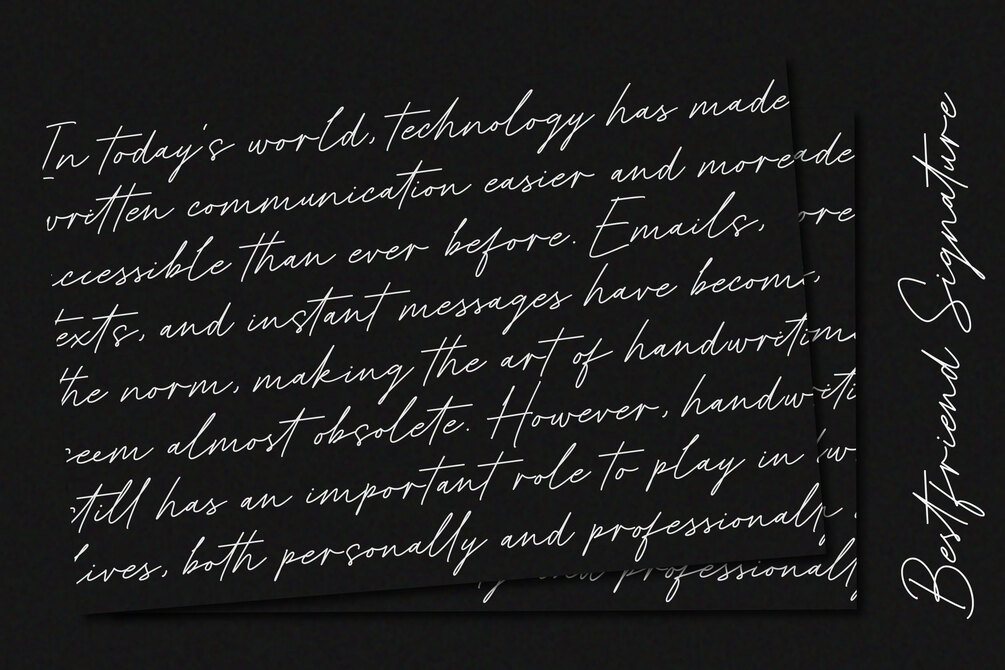 In today's world, technology has made
written communication easier and more
ccessible than ever before. Emails,
texts, and instant messages have becom
the norm, making the art of handwriting
eem almost obsolete. However, handwriti
till has an important role to play in
lives, both personally and professionall
ade
ore
professionall
Bestfriend Signature